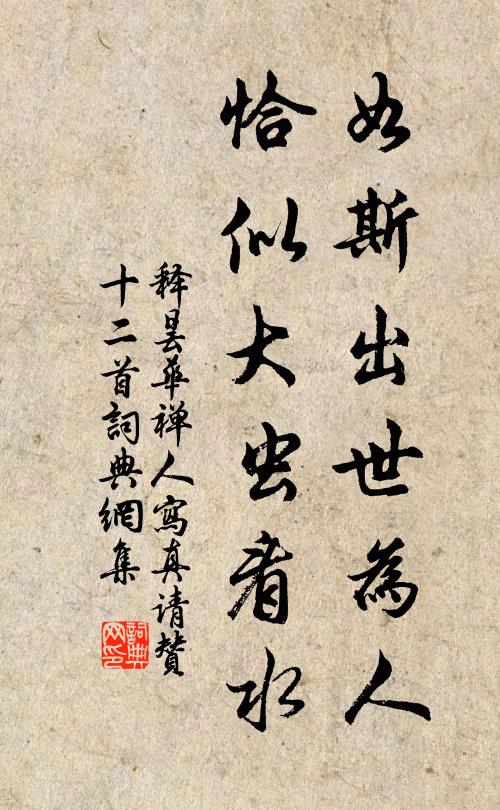 如斯出世為人
恰似大虫看水
释昙華禅人寫真请赞
十二首詞典網集
詞典网印